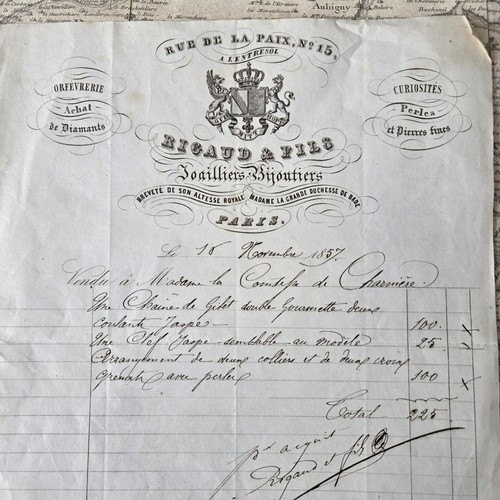 Aubigny
RUE DE LA PAIX, No 15,
A L'ENTRESOL
ORFEVRERIE
Achat
de Diamants
CURIOSITÉS
Perles
et Pierres fines
RIGAUD & FILS
Joailliers-Bijoutiers
BREVETÉ DE SON ALTESSE ROYALE MADAME LA GRANDE DUCHESSE DE BADE
PARIS.
Le 18 Novembre 1857.
Vendu à Madame la Comtesse de Charnière.
Une Chaine de Gilet double Gourmette deux
coulants Jaspe 100.
Une Clef Jaspe semblable au modèle 25
Arrangement de deux colliers et de deux croix
grenats avec perles 100
Total 225
pr acquit
Rigaud et fils